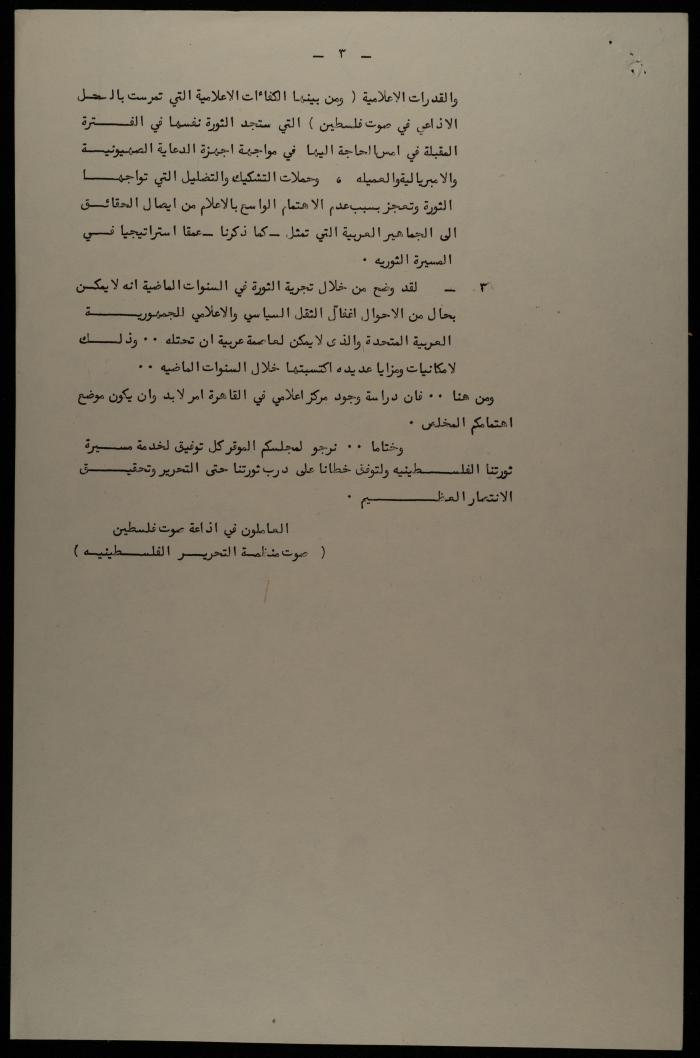 — ٣ —
والقدرات الاعلامية ( ومن بينها الكفاءات الاعلامية التي تمرست بالعمل
الاذاعي في صوت فلسطين ) التي ستجد الثورة نفسها في الفترة
المقبلة في امس الحاجة اليها في مواجهة اجهزة الدعاية الصهيونية
والامبريالية والعميله ، وحملات التشكيك والتضليل التي تواجهها
الثورة وتعجز بسبب عدم الاهتمام الواسع بالاعلام من ايصال الحقائق
الى الجماهير العربية التي تمثل — كما ذكرنا — عمقا استراتيجيا في
المسيرة الثوريه .
٣ — لقد وضح من خلال تجربة الثورة في السنوات الماضية انه لا يمكن
بحال من الاحوال اغفال الثقل السياسي والاعلامي للجمهورية
العربية المتحدة والذى لا يمكن لعاصمة عربية ان تحتله ٠٠ وذلك
لامكانيات ومزايا عديده اكتسبتها خلال السنوات الماضيه ٠٠
ومن هنا ٠٠ فان دراسة وجود مركز اعلامي في القاهرة امر لابد وان يكون موضع
اهتمامكم المخلص .
وختاما ٠٠ نرجو لمجلسكم الموقر كل توفيق لخدمة مسيرة
ثورتنا الفلسطينيه ولتوفق خطانا على درب ثورتنا حتى التحرير وتحقيق
الانتصار العظيم .
العاملون في اذاعة صوت فلسطين
( صوت منظمة التحرير الفلسطينيه )